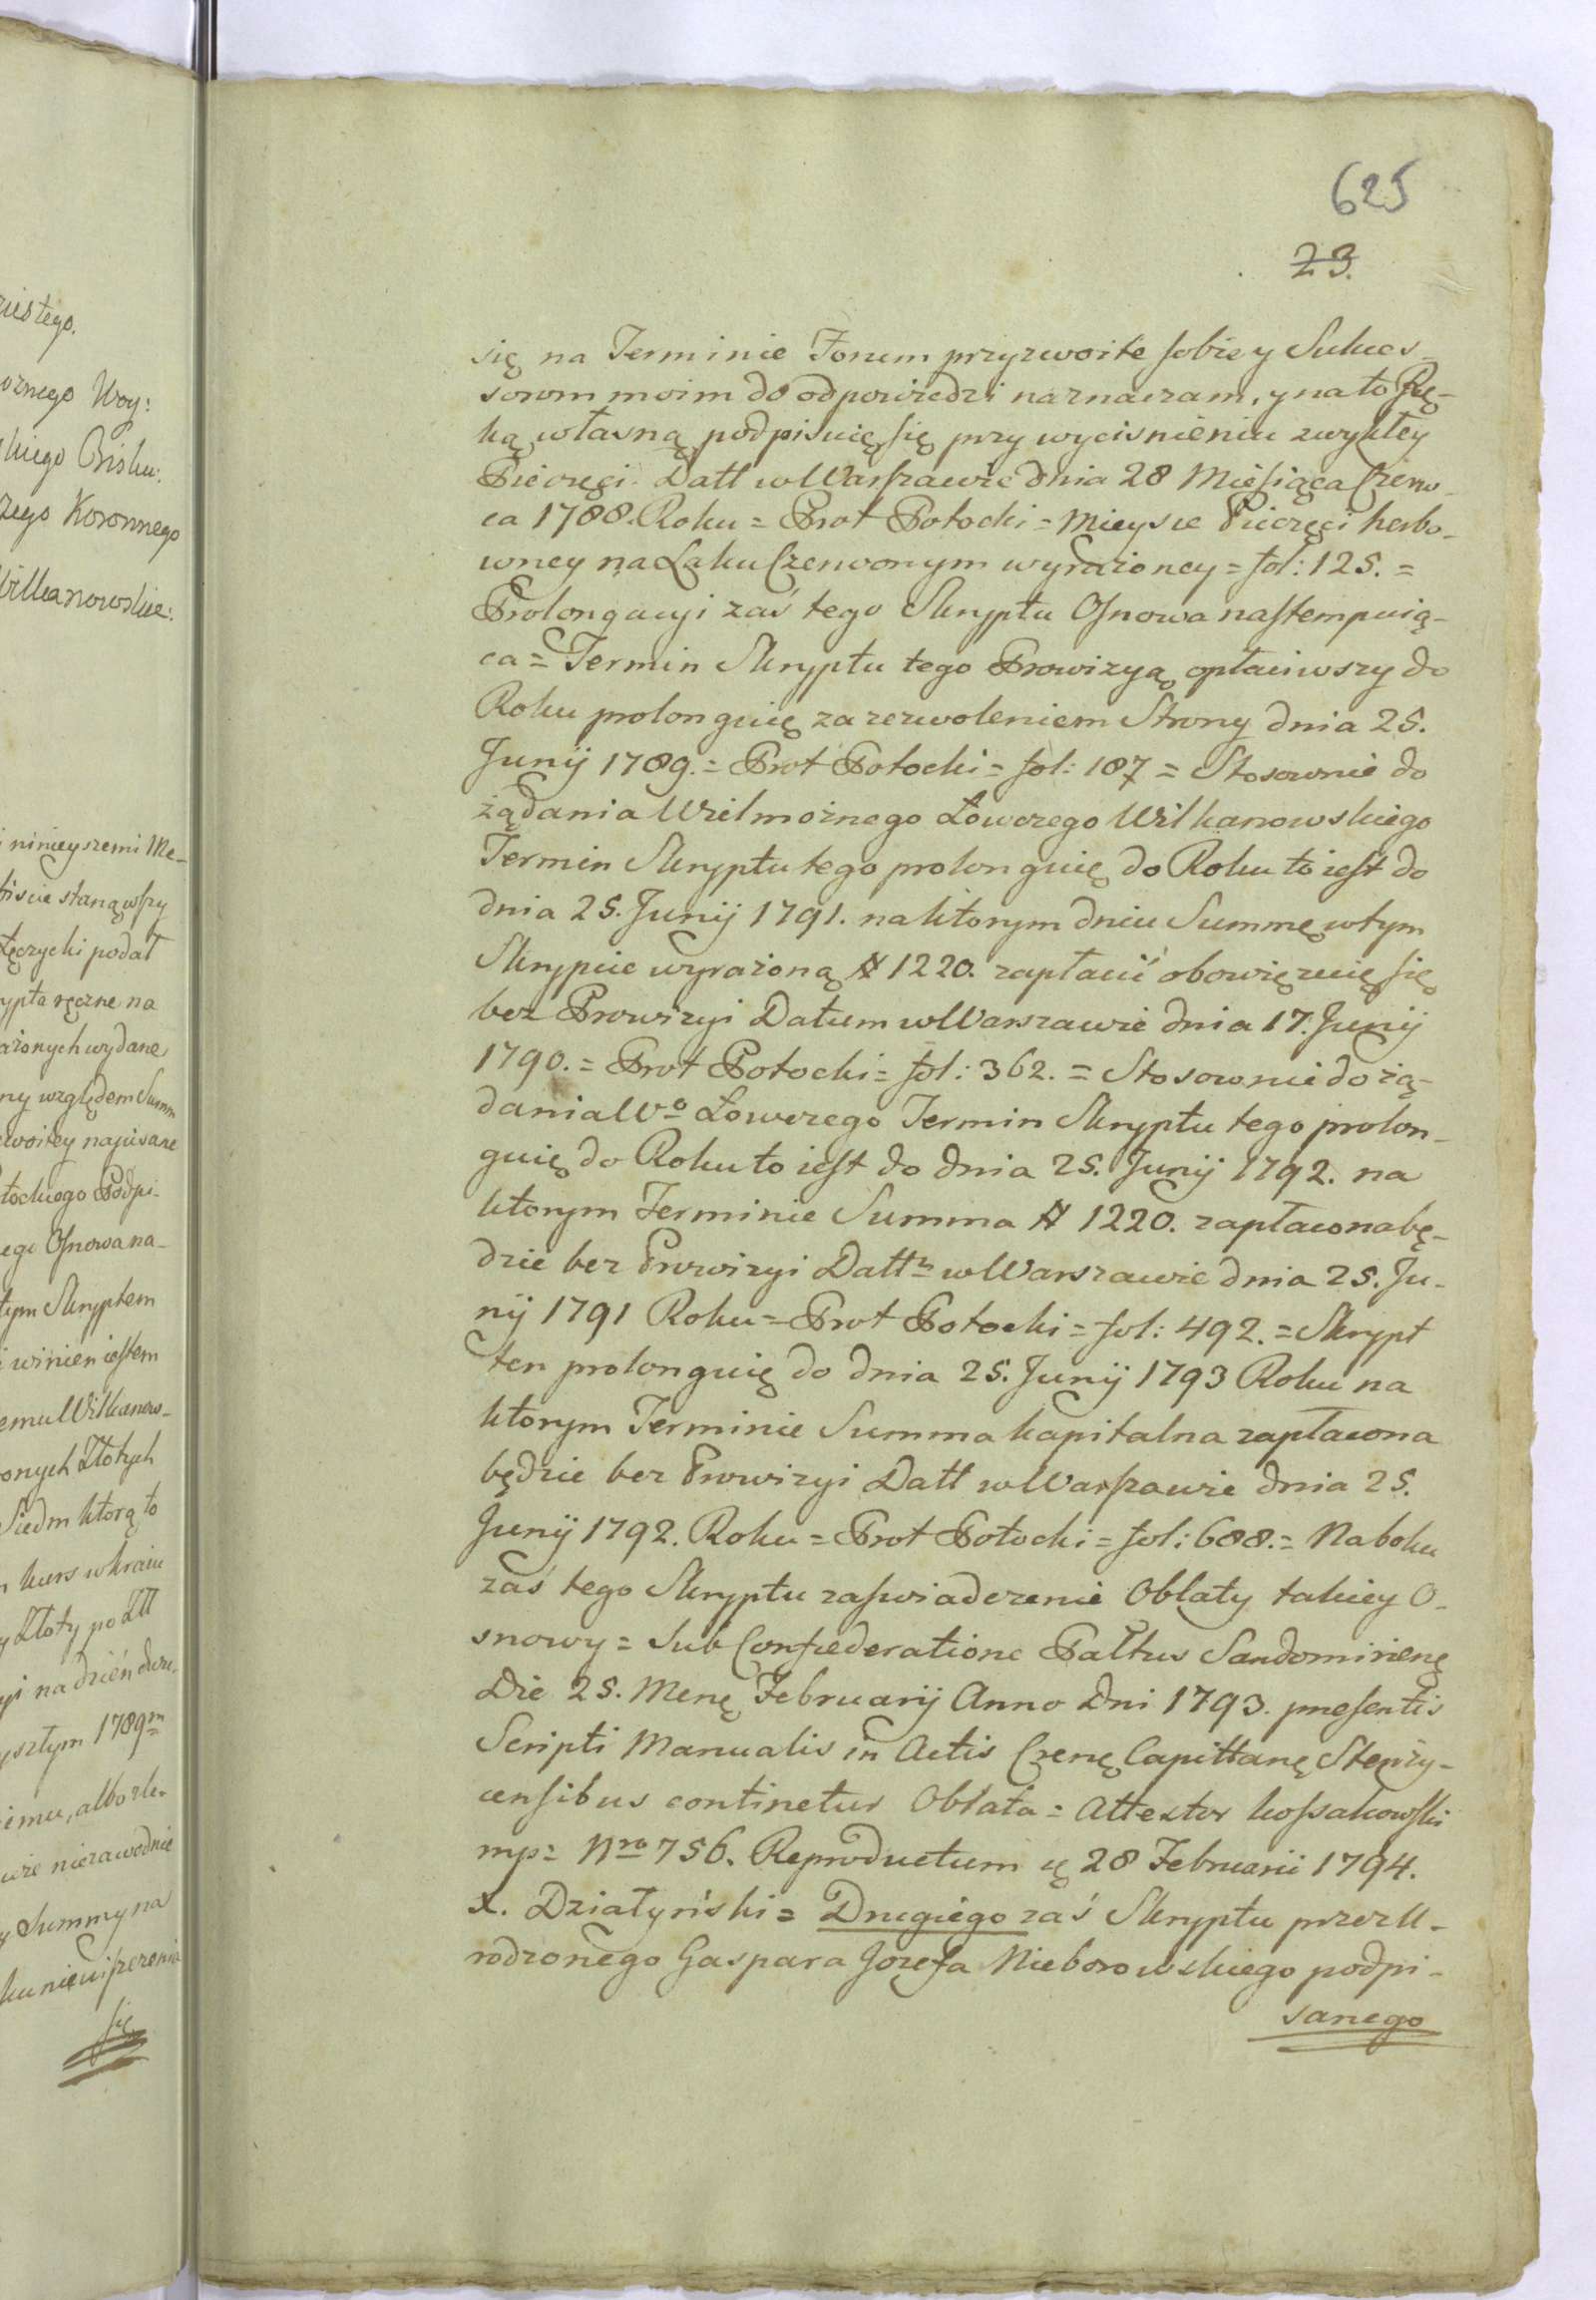 625
23.
się na Terminie Forum przyzwoite sobie y Sukces-
sorom moim do odpowiedzi naznaczam, y na to Rę-
ką własną podpisuię się przy wyciśnieniu zwykłey
Pieczęci. Datt w Warszawie dnia 28 Miesiąca Czerw-
ca 1788. Roku = Prot Potocki = Mieysce Pieczęci herbo-
wney na Laku Czerwonym wyrażoney = fol: 125. =
Prolongacyi zaś tego Skryptu Osnowa nastempuią-
ca = Termin Skryptu tego Prowizyą opłaciwszy do
Roku prolonguię za zezwoleniem Strony dnia 25.
Junij 1789. = Prot Potocki = fol: 187 = Stosownie do
żądania Wielmożnego Łowczego Wilkanowskiego
Termin Skryptu tego prolonguię do Roku to iest do
dnia 25. Junij 1791. na ktorym dniu Summę w tym
Skrypcie wyrażoną # 1220. zapłacić obowięzuię się
bez Prowizyi Datum w Warszawie dnia 17. Junij
1790. = Prot Potocki = fol: 362. = Stosownie do żą-
dania Wo Łowczego Termin Skryptu tego prolon-
guię do Roku to iest do dnia 25. Junij 1792. na
ktorym Terminie Summa # 1220. zapłacona bę-
dzie bez Prowizyi Dattt w Warszawie dnia 25. Ju-
nij 1791 Roku = Prot Potocki = fol: 492. = Skrypt
ten prolonguię do dnia 25. Junij 1793 Roku na
ktorym Terminie Summa kapitalna zapłacona
będzie bez Prowizyi Datt w Warszawie dnia 25.
Junij 1792. Roku = Prot Potocki = fol: 688. = Na boku
zaś tego Skryptu zaswiadczenie Oblaty takiey O-
snowy = Sub Confoederatione Pałtus Sandomirienę
Die 25. Menę Februarij Anno Dni 1793. presentis
Scripti Manualis in Actis Crenę Capittanę Stęży-
censibus continetur Oblata = Attestor Kossakowski
mp = Nro 756. Reproductum ę 28 Februarii 1794.
X. Działyński = Drugiego zaś Skryptu przez U-
rodzonego Gaspara Jozefa Nieborowskiego podpi-
sanego
ziestego.
ożnego Woy:
skiego Bisku:
zego Koronnego
Wilkanowskie:
i ninieyszemi Me-
biscie stanąwszy
Łęczycki podał
rypta ręczne na
ażonych wydane
ny względem Summ
zwoitey napisane
tockiego Podpi-
ego Osnowa na-
tym Skryptem
i winien iestem
emu Wilkanow-
onych Złotych
Siedm ktorą to
n kurs w kraiu
y Złoty po Złł
yi na dzień dwu-
yszłym 1789m
iemu, albo zle-
wie niezawodnie
y Summy na
ku nieuiszczenia
się